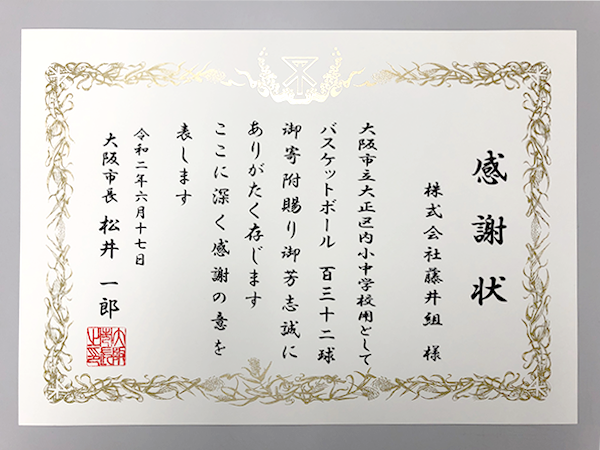 感謝状
株式会社藤井組 様
大阪市立大正区内小中学校用として
バスケットボール 百三十二球
御寄附賜り御芳志誠に
ありがたく存じます
ここに深く感謝の意を
表します
令和二年六月十七日
大阪市長 松井 一郎